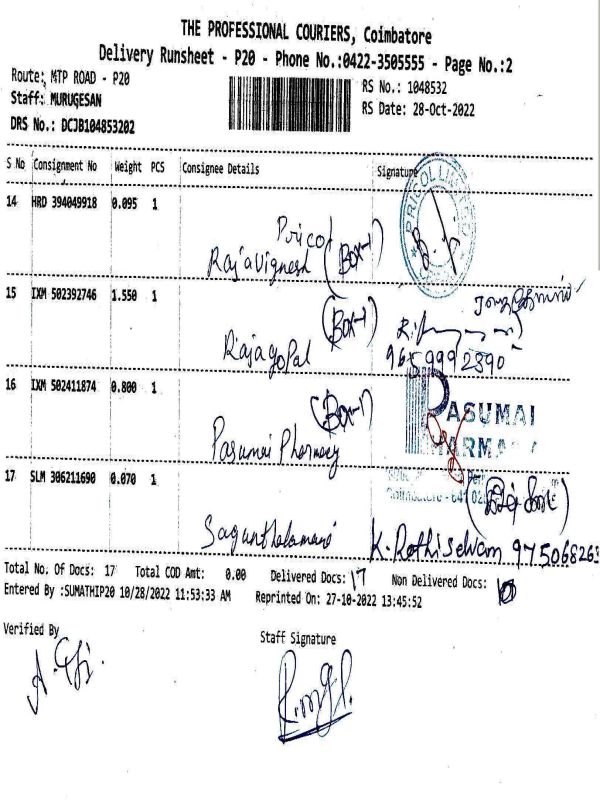 THE PROFESSIONAL COURIERS, Coimbatore
Delivery Runsheet - P20 - Phone No.:0422-3505555 - Page No.:2
Route: MTP ROAD - P20
RS No.: 1048532
Staff: MURUGESAN
RS Date: 28-Oct-2022
DRS No.: DCJB104853202
S No Consignment No Weight PCS Consignee Details Signature
14 HRD 394049918 0.095 1
PRICOL LIMITED
Pricol
Rajavignesh (Box-1)
15 IXM 502392746 1.550 1
(Box-1)
Rajagopal
9659992890
16 IXM 502411874 0.800 1
(Box-1)
PASUMAI
Pasumai Pharmacy
PARMA
17 SLM 306211690 0.070 1
Coimbatore - 641 02
K. Rathiselvam 975068263
Total No. Of Docs: 17 Total COD Amt: 0.00 Delivered Docs: 17 Non Delivered Docs:
Entered By :SUMATHIP20 10/28/2022 11:53:33 AM Reprinted On: 27-10-2022 13:45:52
Verified By
Staff Signature